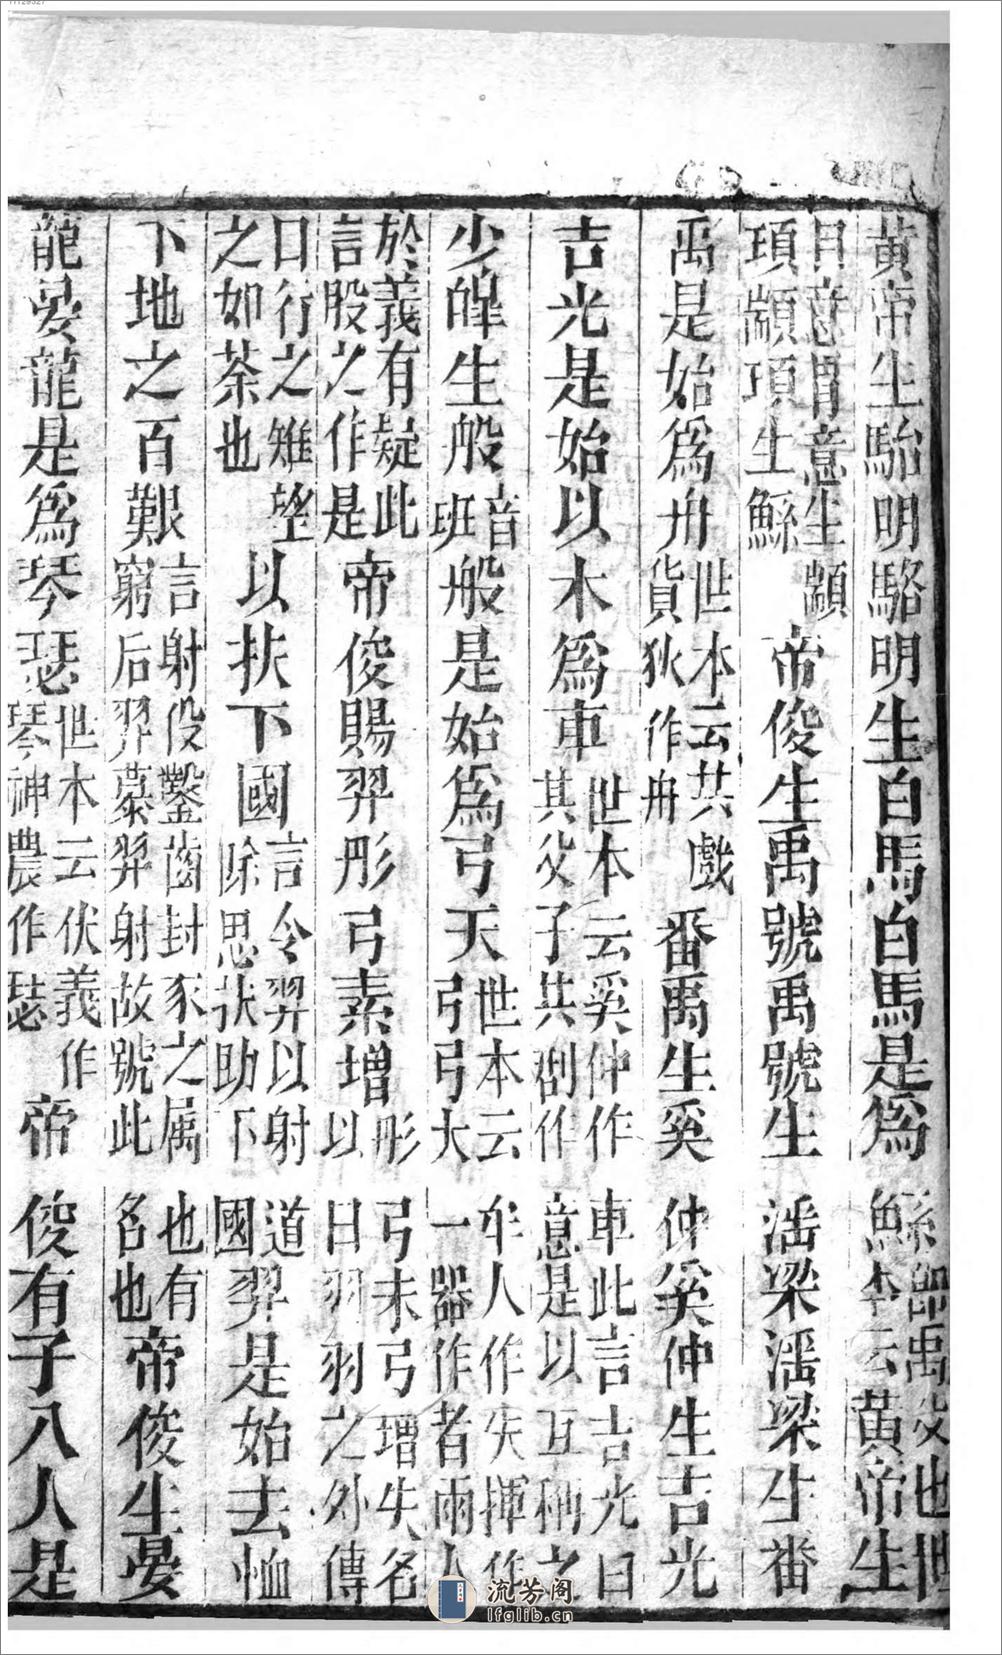 黃帝生駱明駱明生白馬白馬是爲鯀
即禹父也世
本云黃帝生
昌意昌意生顓
項顓項生鯀
帝俊生禹號禹號生滛梁滛梁生番
禹是始爲舟
世本云共戲
貨狄作舟
番禹生奚仲奚仲生吉光
吉光是始以木爲車
世本云奚仲作車此言吉光曰
其父子共創作意是以互稱之
少皥生般
音
班
般是始爲弓
世本云牟人作矢揮作
弓弓大一器作者兩人
於義有疑此
言般之作是
帝俊賜羿彤弓素增
彤弓未弓增矢名
以白羽羽之外傳
曰行之雉望
之如荼也
以扶下國
言令羿以射道
除思扶助下國
羿是始去恤
下地之百艱
言射殺鑿齒封豕之属也有
窮后羿慕羿射故號此名也
帝俊生晏
龍晏龍是爲琴瑟
世本云伏義作
琴神農作瑟
帝俊有子八人是
流芳阁
lfglib.cn